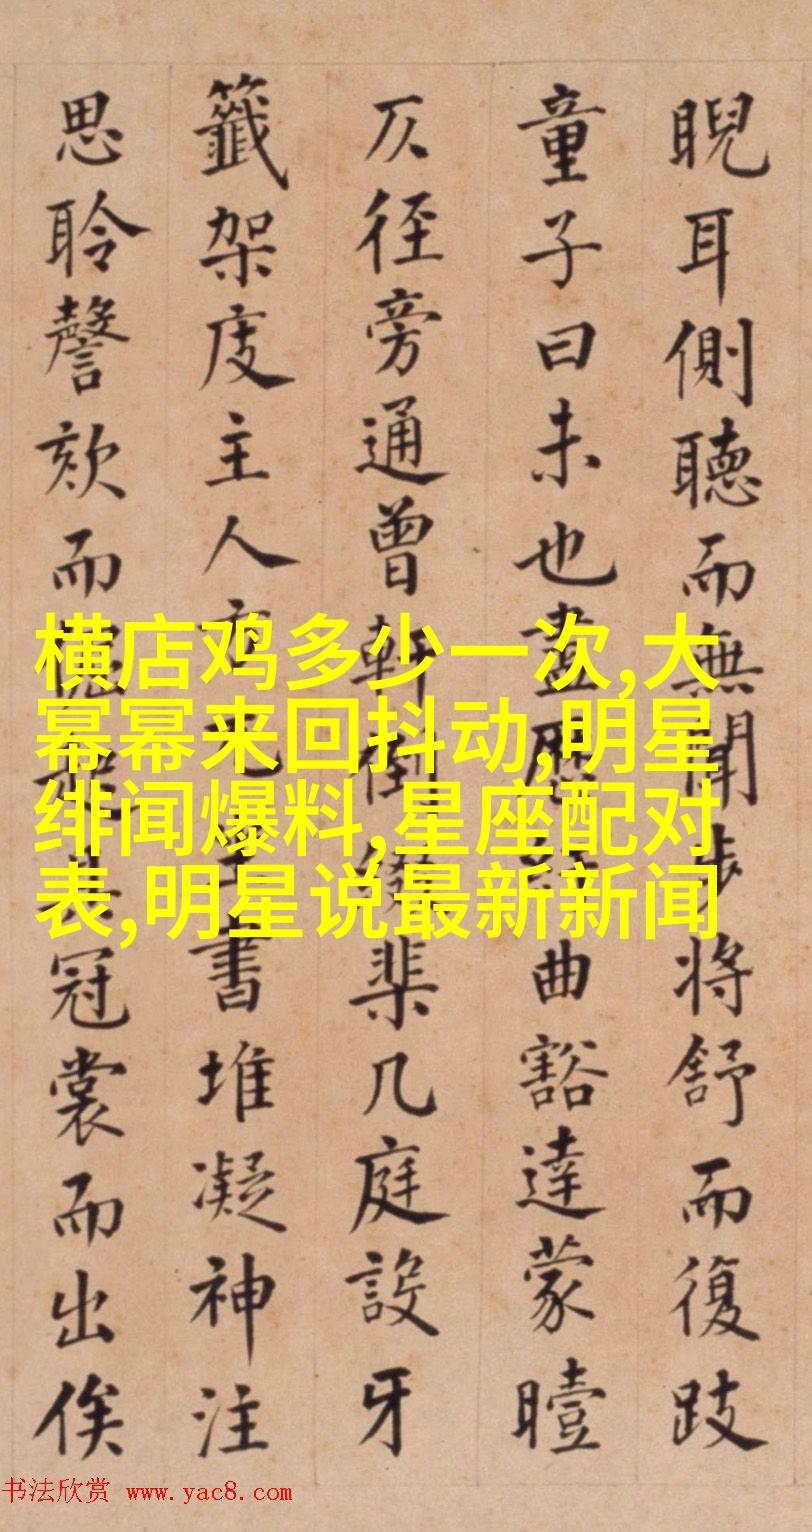 睨耳側聽而無聞步將舒而復跂
童子曰未也盡歷曲豁達蒙曀
仄徑旁通曾軒倒棐几庭設牙
籤架庋主人兀坐書堆凝神注
思聆謦欬而冠裳而出俟
横店鸡多少一次,大
幂幂来回抖动,明星
绯闻爆料,星座配对
表,明星说最新新闻
书法欣赏 www.yac8.com